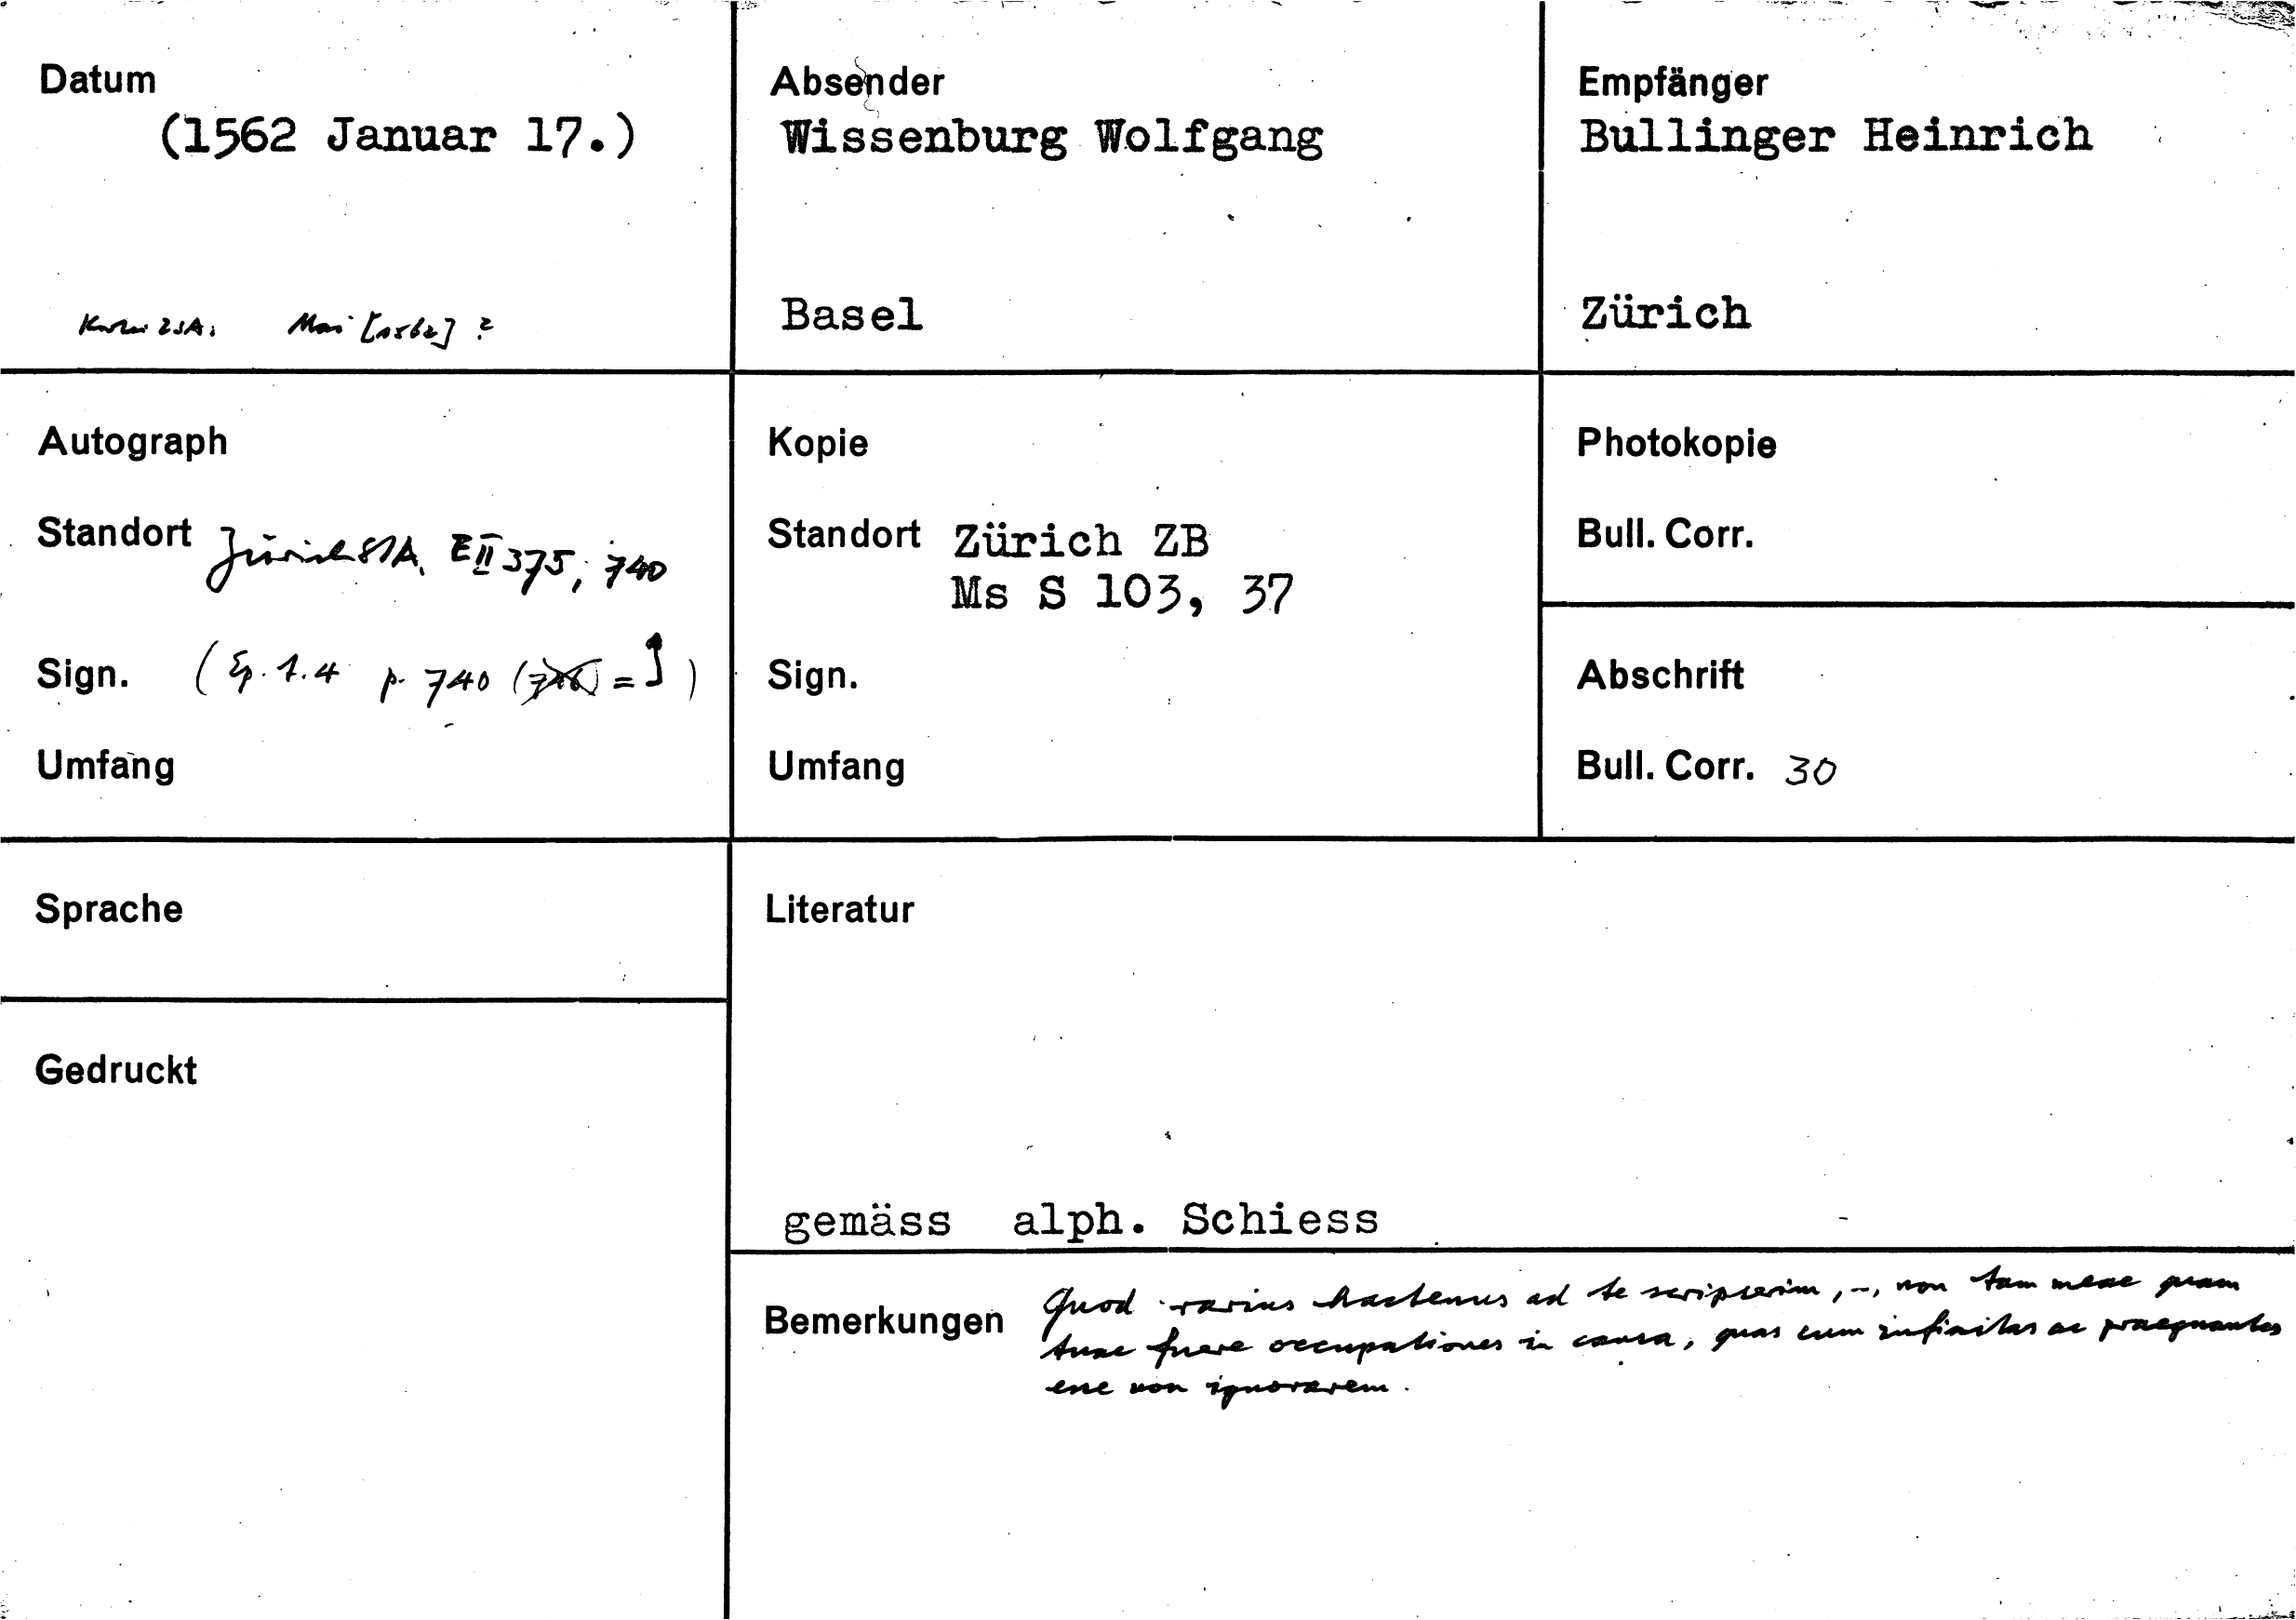 Datum
(1562 Januar 17.)
Mai [1562] ?
Absender
Wissenburg Wolfgang
Basel
Empfänger
Bullinger Heinrich
Zürich
Autograph
Standort Zürich StA, E II 375, 740
Sign. (Ep. T. 4 p. 740 ( = )
Umfang
Kopie
Standort Zürich ZB
Ms S 103, 37
Sign.
Umfang
Photokopie
Bull. Corr.
Abschrift
Bull. Corr. 30
Sprache
Gedruckt
Literatur
gemäss alph. Schiess
Bemerkungen Quod rarius hactenus ad te scripserim, -, non tam meae quam
tuae fuere occupationes in causa, quas cum infinitas ac praegnantes
esse non ignorarem.